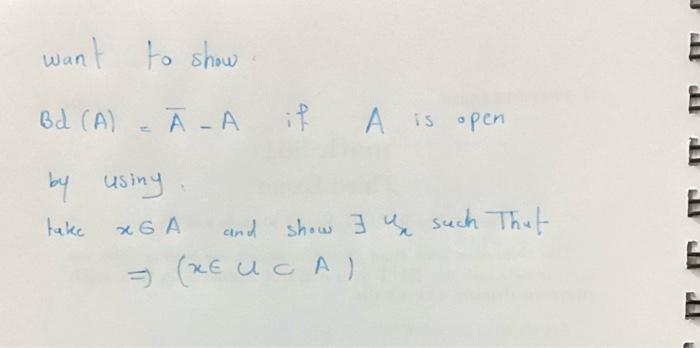 want to show.
Bd (A) = Ā - A if A is open
by using.
take x ∈ A and show ∃ Uₓ such That
⇒ (x ∈ U ⊂ A)